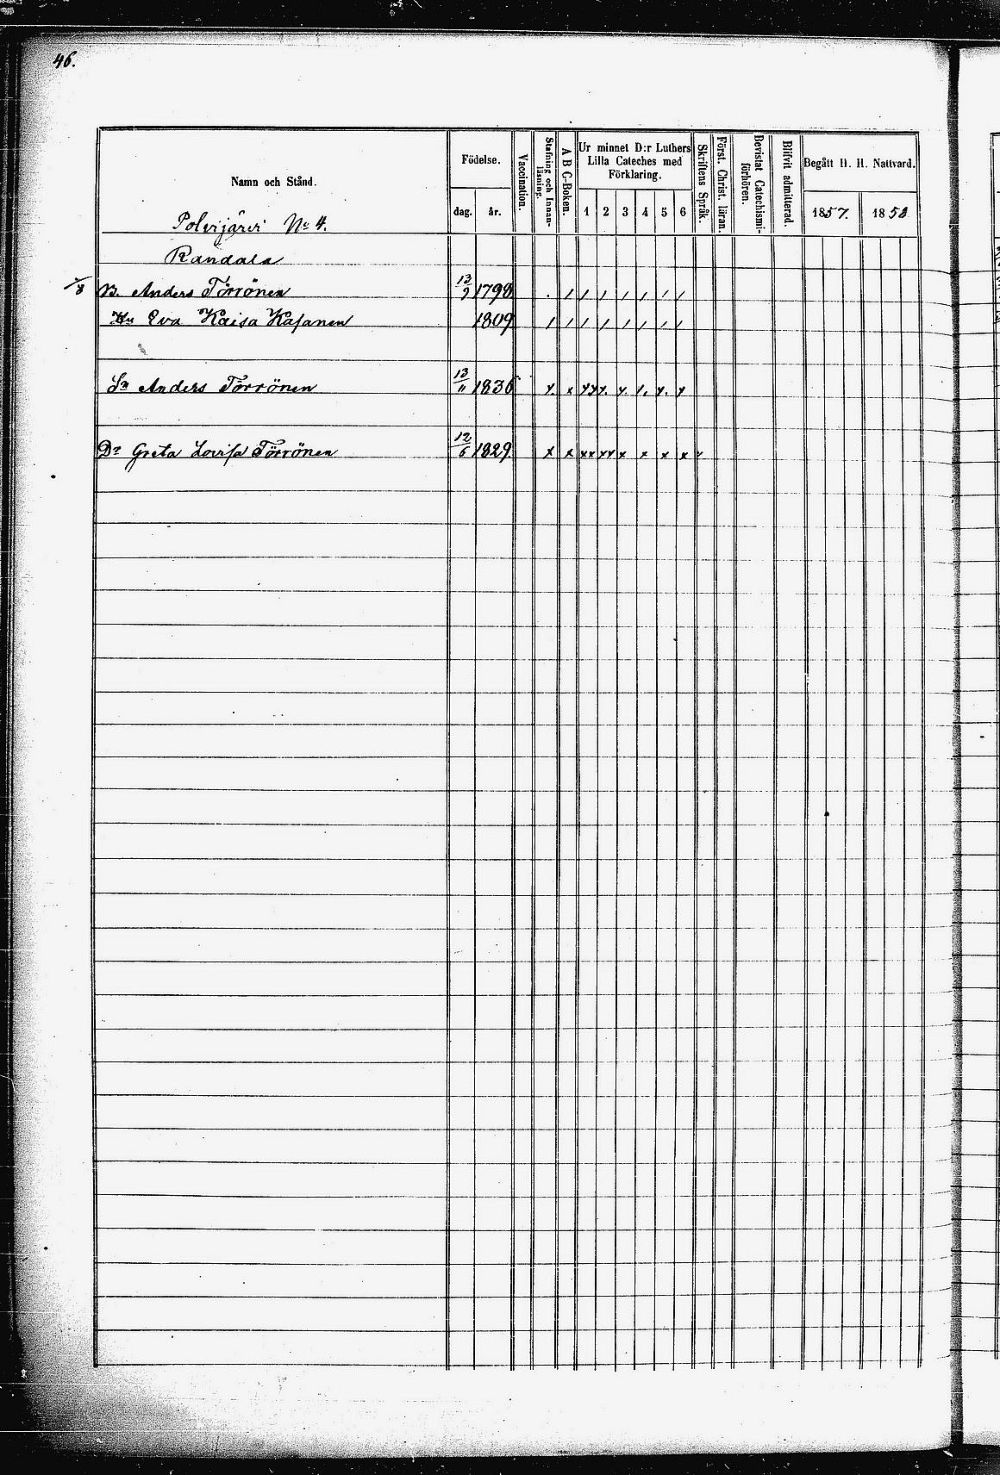 46.
Namn och Stånd.
Födelse.
dag. år.
Vaccination.
Stafning och Innanläsning.
A B C-Boken.
Ur minnet D:r Luthers Lilla Cateches med Förklaring.
1 2 3 4 5 6
Skriftens Språk.
Först. Christ. läran.
Bevistat Catechismiförhören.
Blifvit admitterad.
Begått H. H. Nattvard.
1857. 1858
Polvijärvi No 4.
Randala
B. Anders Törrönen 13/9 1798
Hu Eva Kaisa Kasanen 1809
Sn Anders Törrönen 13/11 1836
Dr Greta Lovisa Törrönen 12/6 1829